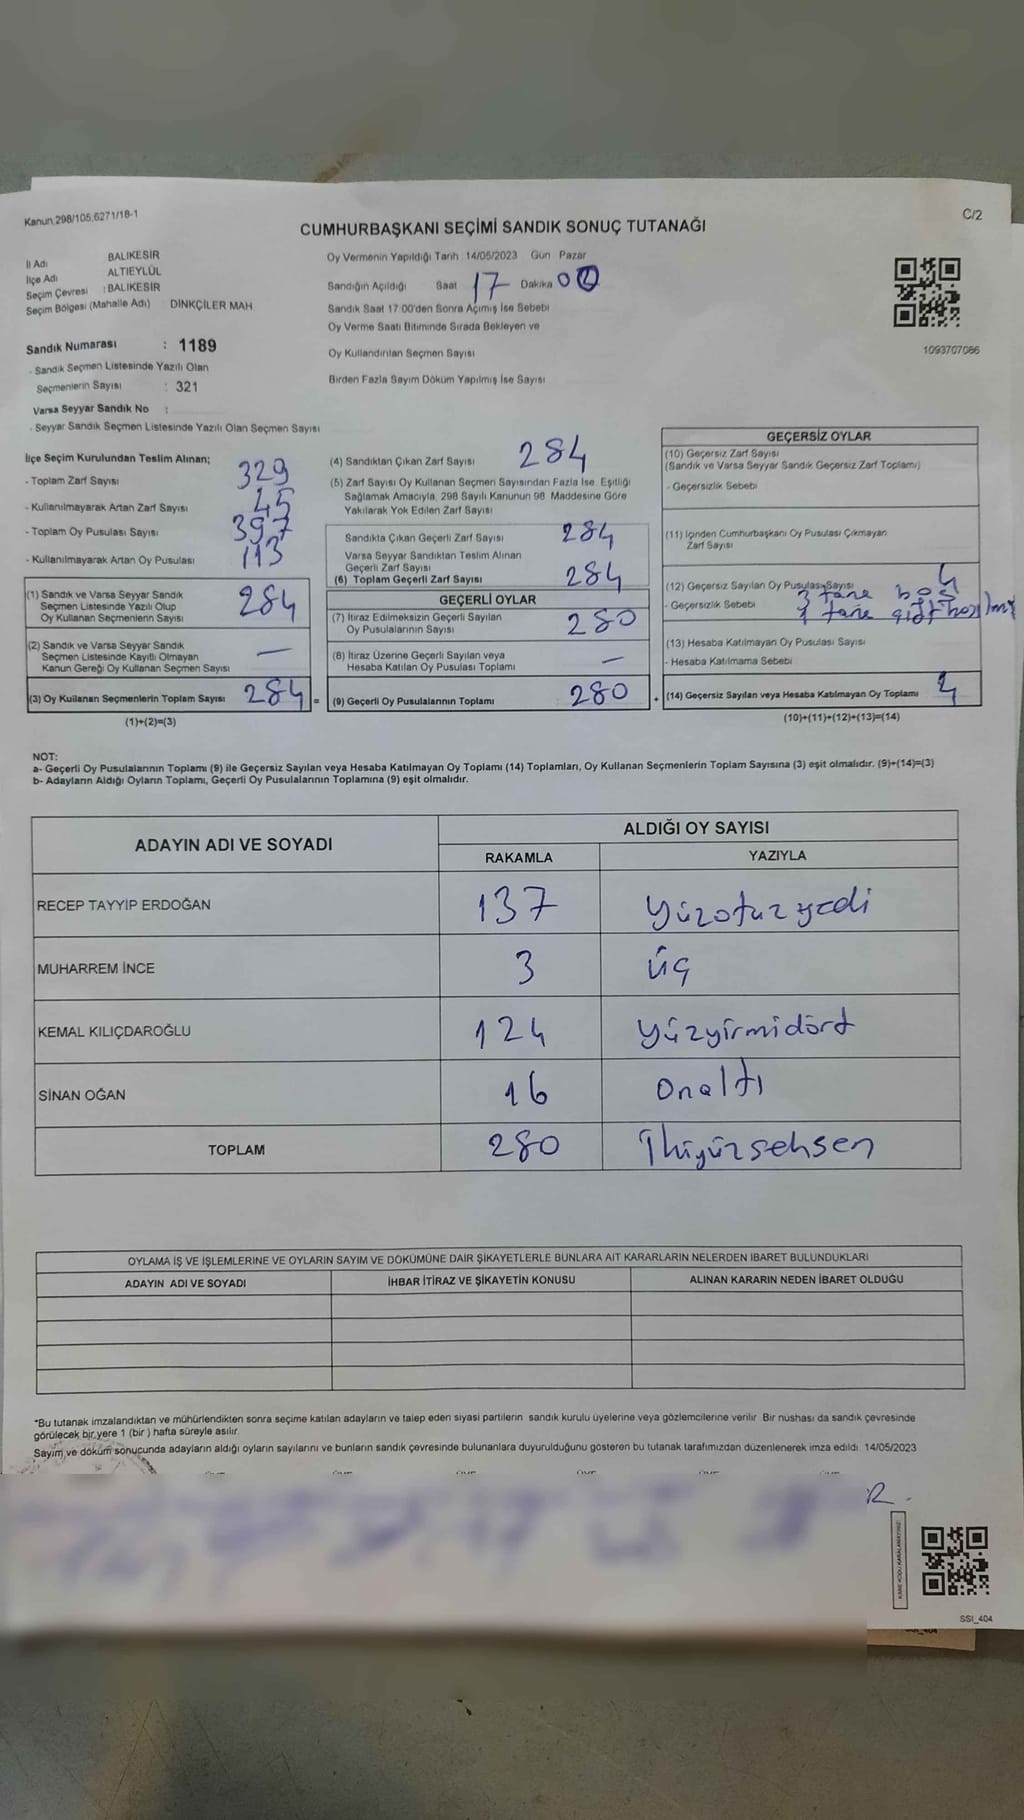 Kanun.298/105,6271/18-1
C/2
CUMHURBAŞKANI SEÇİMİ SANDIK SONUÇ TUTANAĞI
İl Adı BALIKESİR
İlçe Adı ALTIEYLÜL
Seçim Çevresi : BALIKESİR
Seçim Bölgesi (Mahalle Adı) : DİNKÇİLER MAH
Sandık Numarası : 1189
- Sandık Seçmen Listesinde Yazılı Olan
Seçmenlerin Sayısı : 321
Varsa Seyyar Sandık No :
- Seyyar Sandık Seçmen Listesinde Yazılı Olan Seçmen Sayısı
Oy Vermenin Yapıldığı Tarih 14/05/2023 Gün Pazar
Sandığın Açıldığı Saat 17 Dakika 0
Sandık Saat 17:00'den Sonra Açımış İse Sebebi
Oy Verme Saati Bitiminde Sırada Bekleyen ve
Oy Kullandırılan Seçmen Sayısı
Birden Fazla Sayım Döküm Yapılmış İse Sayısı
1093707086
İlçe Seçim Kurulundan Teslim Alınan;
- Toplam Zarf Sayısı 329
- Kullanılmayarak Artan Zarf Sayısı 45
- Toplam Oy Pusulası Sayısı 397
- Kullanılmayarak Artan Oy Pusulası 113
(1) Sandık ve Varsa Seyyar Sandık
Seçmen Listesinde Yazılı Olup
Oy Kullanan Seçmenlerin Sayısı 284
(2) Sandık ve Varsa Seyyar Sandık
Seçmen Listesinde Kayıtlı Olmayan
Kanun Gereği Oy Kullanan Seçmen Sayısı —
(3) Oy Kullanan Seçmenlerin Toplam Sayısı 284 =
(1)+(2)=(3)
(4) Sandıktan Çıkan Zarf Sayısı 284
(5) Zarf Sayısı Oy Kullanan Seçmen Sayısından Fazla İse, Eşitliği
Sağlamak Amacıyla, 298 Sayılı Kanunun 98. Maddesine Göre
Yakılarak Yok Edilen Zarf Sayısı
Sandıkta Çıkan Geçerli Zarf Sayısı 284
Varsa Seyyar Sandıktan Teslim Alınan
Geçerli Zarf Sayısı
(6) Toplam Geçerli Zarf Sayısı 284
GEÇERLİ OYLAR
(7) İtiraz Edilmeksizin Geçerli Sayılan
Oy Pusulalarının Sayısı 280
(8) İtiraz Üzerine Geçerli Sayılan veya
Hesaba Katılan Oy Pusulası Toplamı —
(9) Geçerli Oy Pusulalarının Toplamı 280 +
GEÇERSİZ OYLAR
(10) Geçersiz Zarf Sayısı
(Sandık ve Varsa Seyyar Sandık Geçersiz Zarf Toplamı)
- Geçersizlik Sebebi
(11) İçinden Cumhurbaşkanı Oy Pusulası Çıkmayan
Zarf Sayısı
(12) Geçersiz Sayılan Oy Pusulası Sayısı 4
3 tane boş
- Geçersizlik Sebebi 1 tane çift
(13) Hesaba Katılmayan Oy Pusulası Sayısı
- Hesaba Katılmama Sebebi
(14) Geçersiz Sayılan veya Hesaba Katılmayan Oy Toplamı 4
(10)+(11)+(12)+(13)=(14)
NOT:
a- Geçerli Oy Pusulalarının Toplamı (9) ile Geçersiz Sayılan veya Hesaba Katılmayan Oy Toplamı (14) Toplamları, Oy Kullanan Seçmenlerin Toplam Sayısına (3) eşit olmalıdır. (9)+(14)=(3)
b- Adayların Aldığı Oyların Toplamı, Geçerli Oy Pusulalarının Toplamına (9) eşit olmalıdır.
ADAYIN ADI VE SOYADI ALDIĞI OY SAYISI
RAKAMLA YAZIYLA
RECEP TAYYİP ERDOĞAN 137 yüzotuzyedi
MUHARREM İNCE 3 üç
KEMAL KILIÇDAROĞLU 124 yüzyirmidört
SİNAN OĞAN 16 onaltı
TOPLAM 280 ikiyüzseksen
OYLAMA İŞ VE İŞLEMLERİNE VE OYLARIN SAYIM VE DÖKÜMÜNE DAİR ŞİKAYETLERLE BUNLARA AİT KARARLARIN NELERDEN İBARET BULUNDUKLARI
ADAYIN ADI VE SOYADI İHBAR İTİRAZ VE ŞİKAYETİN KONUSU ALINAN KARARIN NEDEN İBARET OLDUĞU
*Bu tutanak imzalandıktan ve mühürlendikten sonra seçime katılan adayların ve talep eden siyasi partilerin sandık kurulu üyelerine veya gözlemcilerine verilir. Bir nüshası da sandık çevresinde
görülecek bir yere 1 (bir) hafta süreyle asılır.
Sayım ve döküm sonucunda adayların aldığı oyların sayılarını ve bunların sandık çevresinde bulunanlara duyurulduğunu gösteren bu tutanak tarafımızdan düzenlenerek imza edildi. 14/05/2023
SSI_404